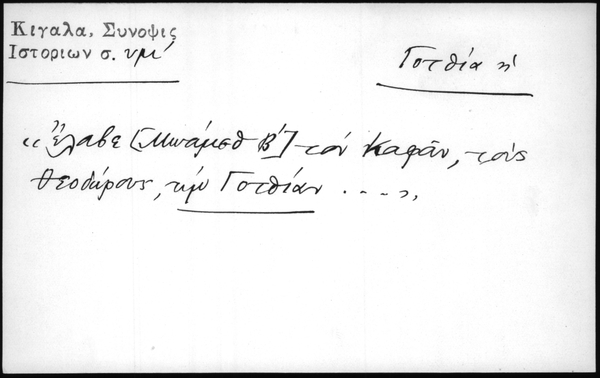 Κιγαλα, Συνοψις
Ιστοριων σ. υμι'
Γοτθία η'
«Ἔλαβε [Μωάμεθ Β'] τόν Καφᾶν, τούς
Θεοδώρους, τήν Γοτθίαν . . . .»